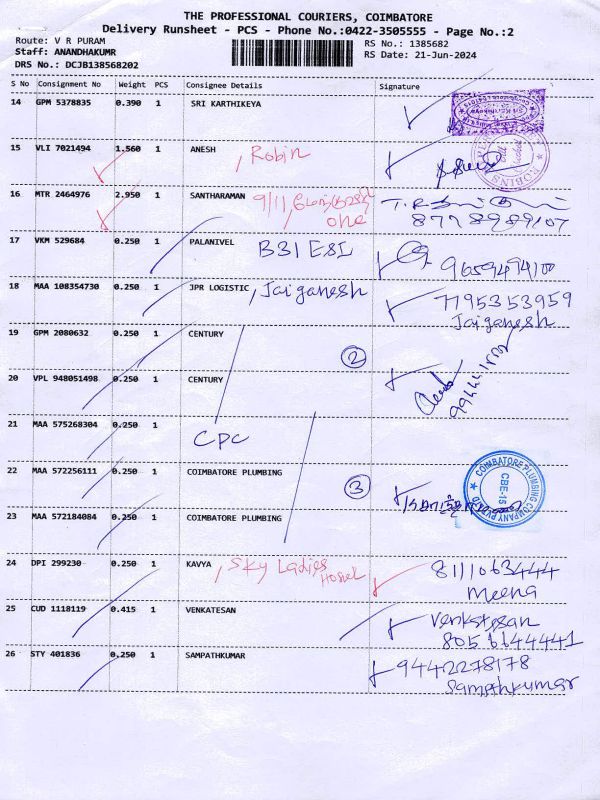 THE PROFESSIONAL COURIERS, COIMBATORE
Delivery Runsheet - PCS - Phone No.:0422-3505555 - Page No.:2
Route: V R PURAM
RS No.: 1385682
Staff: ANANDHAKUMR
RS Date: 21-Jun-2024
DRS No.: DCJB138568202
S No Consignment No Weight PCS Consignee Details Signature
14 GPM 5378835 0.390 1 SRI KARTHIKEYA
15 VLI 7021494 1.560 1 ANESH , Robin
ROBINS
16 MTR 2464976 2.950 1 SANTHARAMAN 9/11,
one
8778989107
17 VKM 529684 0.250 1 PALANIVEL B31 ESI
9659494100
18 MAA 108354730 0.250 1 JPR LOGISTIC , Jaiganesh 7795353959
Jaiganesh
19 GPM 2080632 0.250 1 CENTURY
2
20 VPL 948051498 0.250 1 CENTURY
21 MAA 575268304 0.250 1
CPC
22 MAA 572256111 0.250 1 COIMBATORE PLUMBING
3
COIMBATORE PLUMBING COMPANY PVT LTD
CBE-15
23 MAA 572184084 0.250 1 COIMBATORE PLUMBING
24 DPI 299230 0.250 1 KAVYA , Sky Ladies 8111063444
Hostel Meena
25 CUD 1118119 0.415 1 VENKATESAN Venkatesan
8056644441
26 STY 401836 0.250 1 SAMPATHKUMAR 9442278178
Sampathkumar